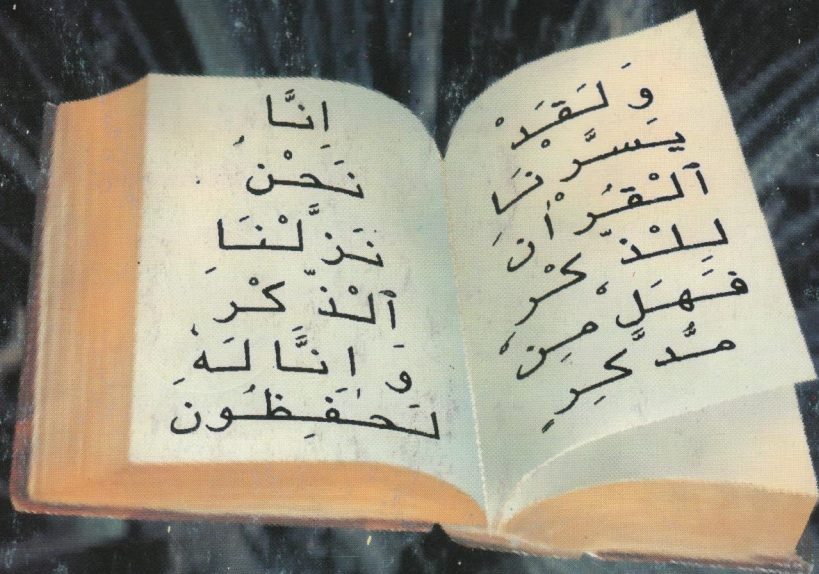 وَ لَقَدْ
يَسَّرْنَا
ٱلْقُرْاٰنَ
لِلذِّكْرِ
فَهَلْ مِنْ
مُّدَّكِرٍ
اِنَّا
نَحْنُ
نَزَّلْنَا
ٱلذِّكْرَ
وَ اِنَّا لَهٗ
لَحٰفِظُونَ